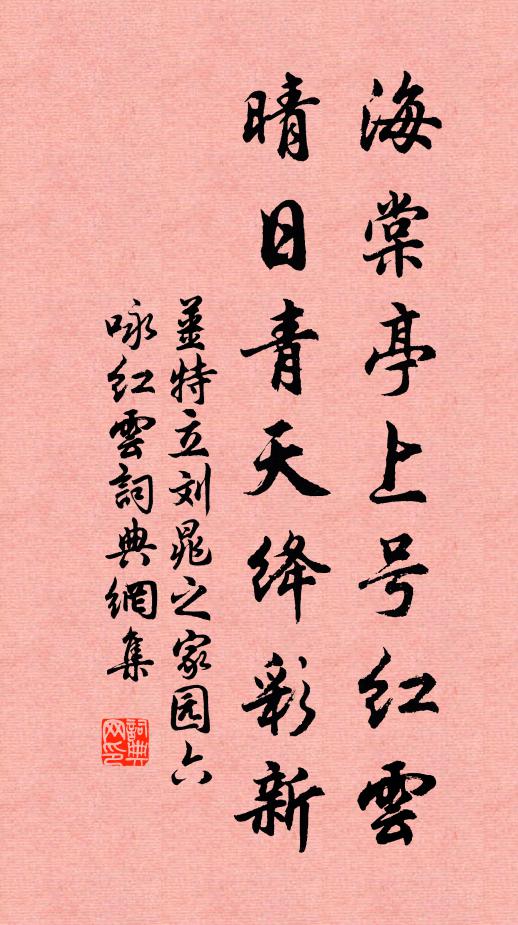 海棠亭上号红雲
晴日青天绛彩新
姜特立刘晁之家园六
咏红雲詞典網集
詞典网印